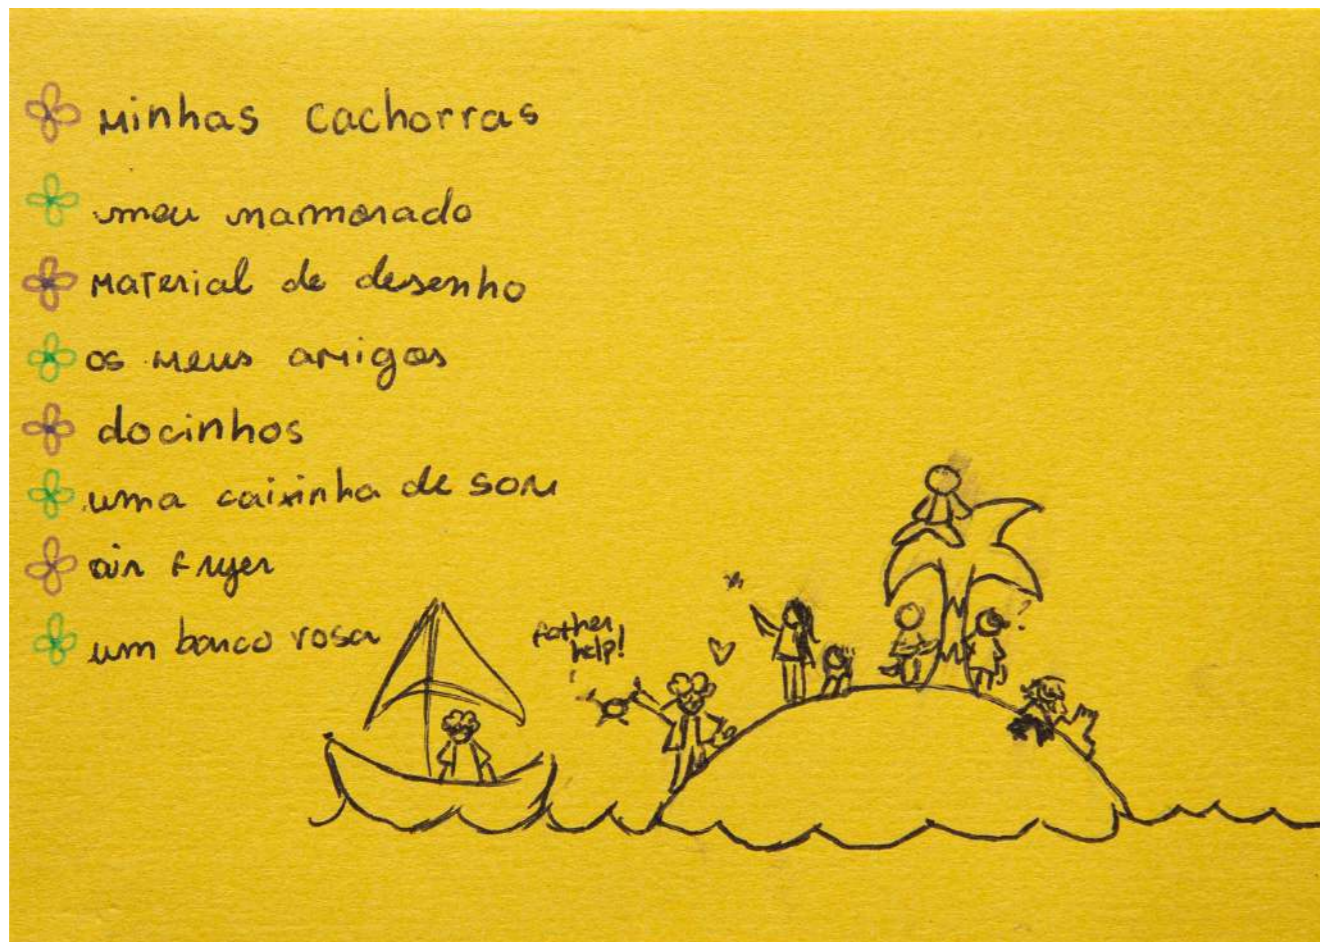 minhas cachorras
meu namorado
material de desenho
os meus amigos
docinhos
uma caixinha de som
air fryer
um barco rosa
father
help!
?